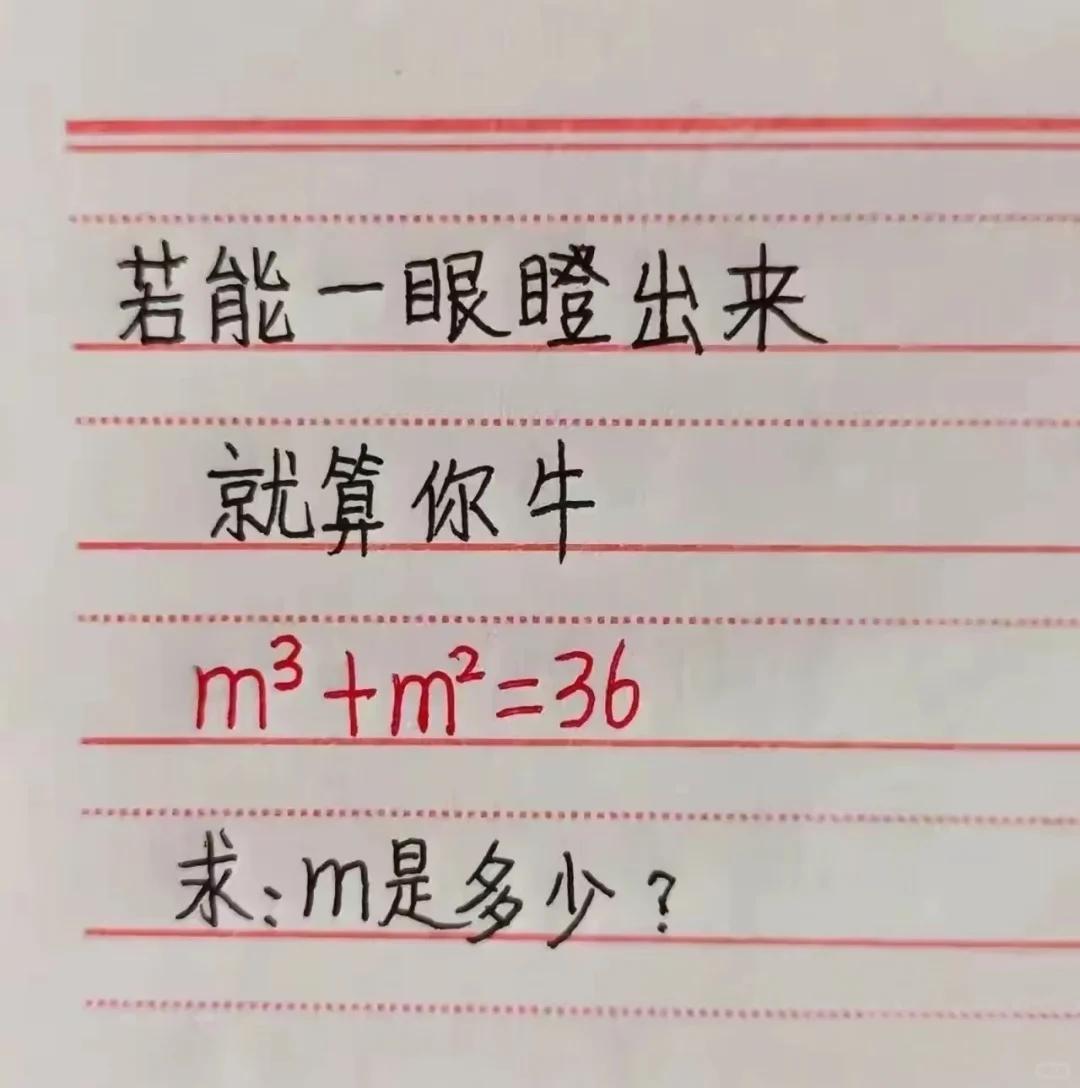 若能一眼瞪出来
就算你牛
m³+m²=36
求:m是多少?